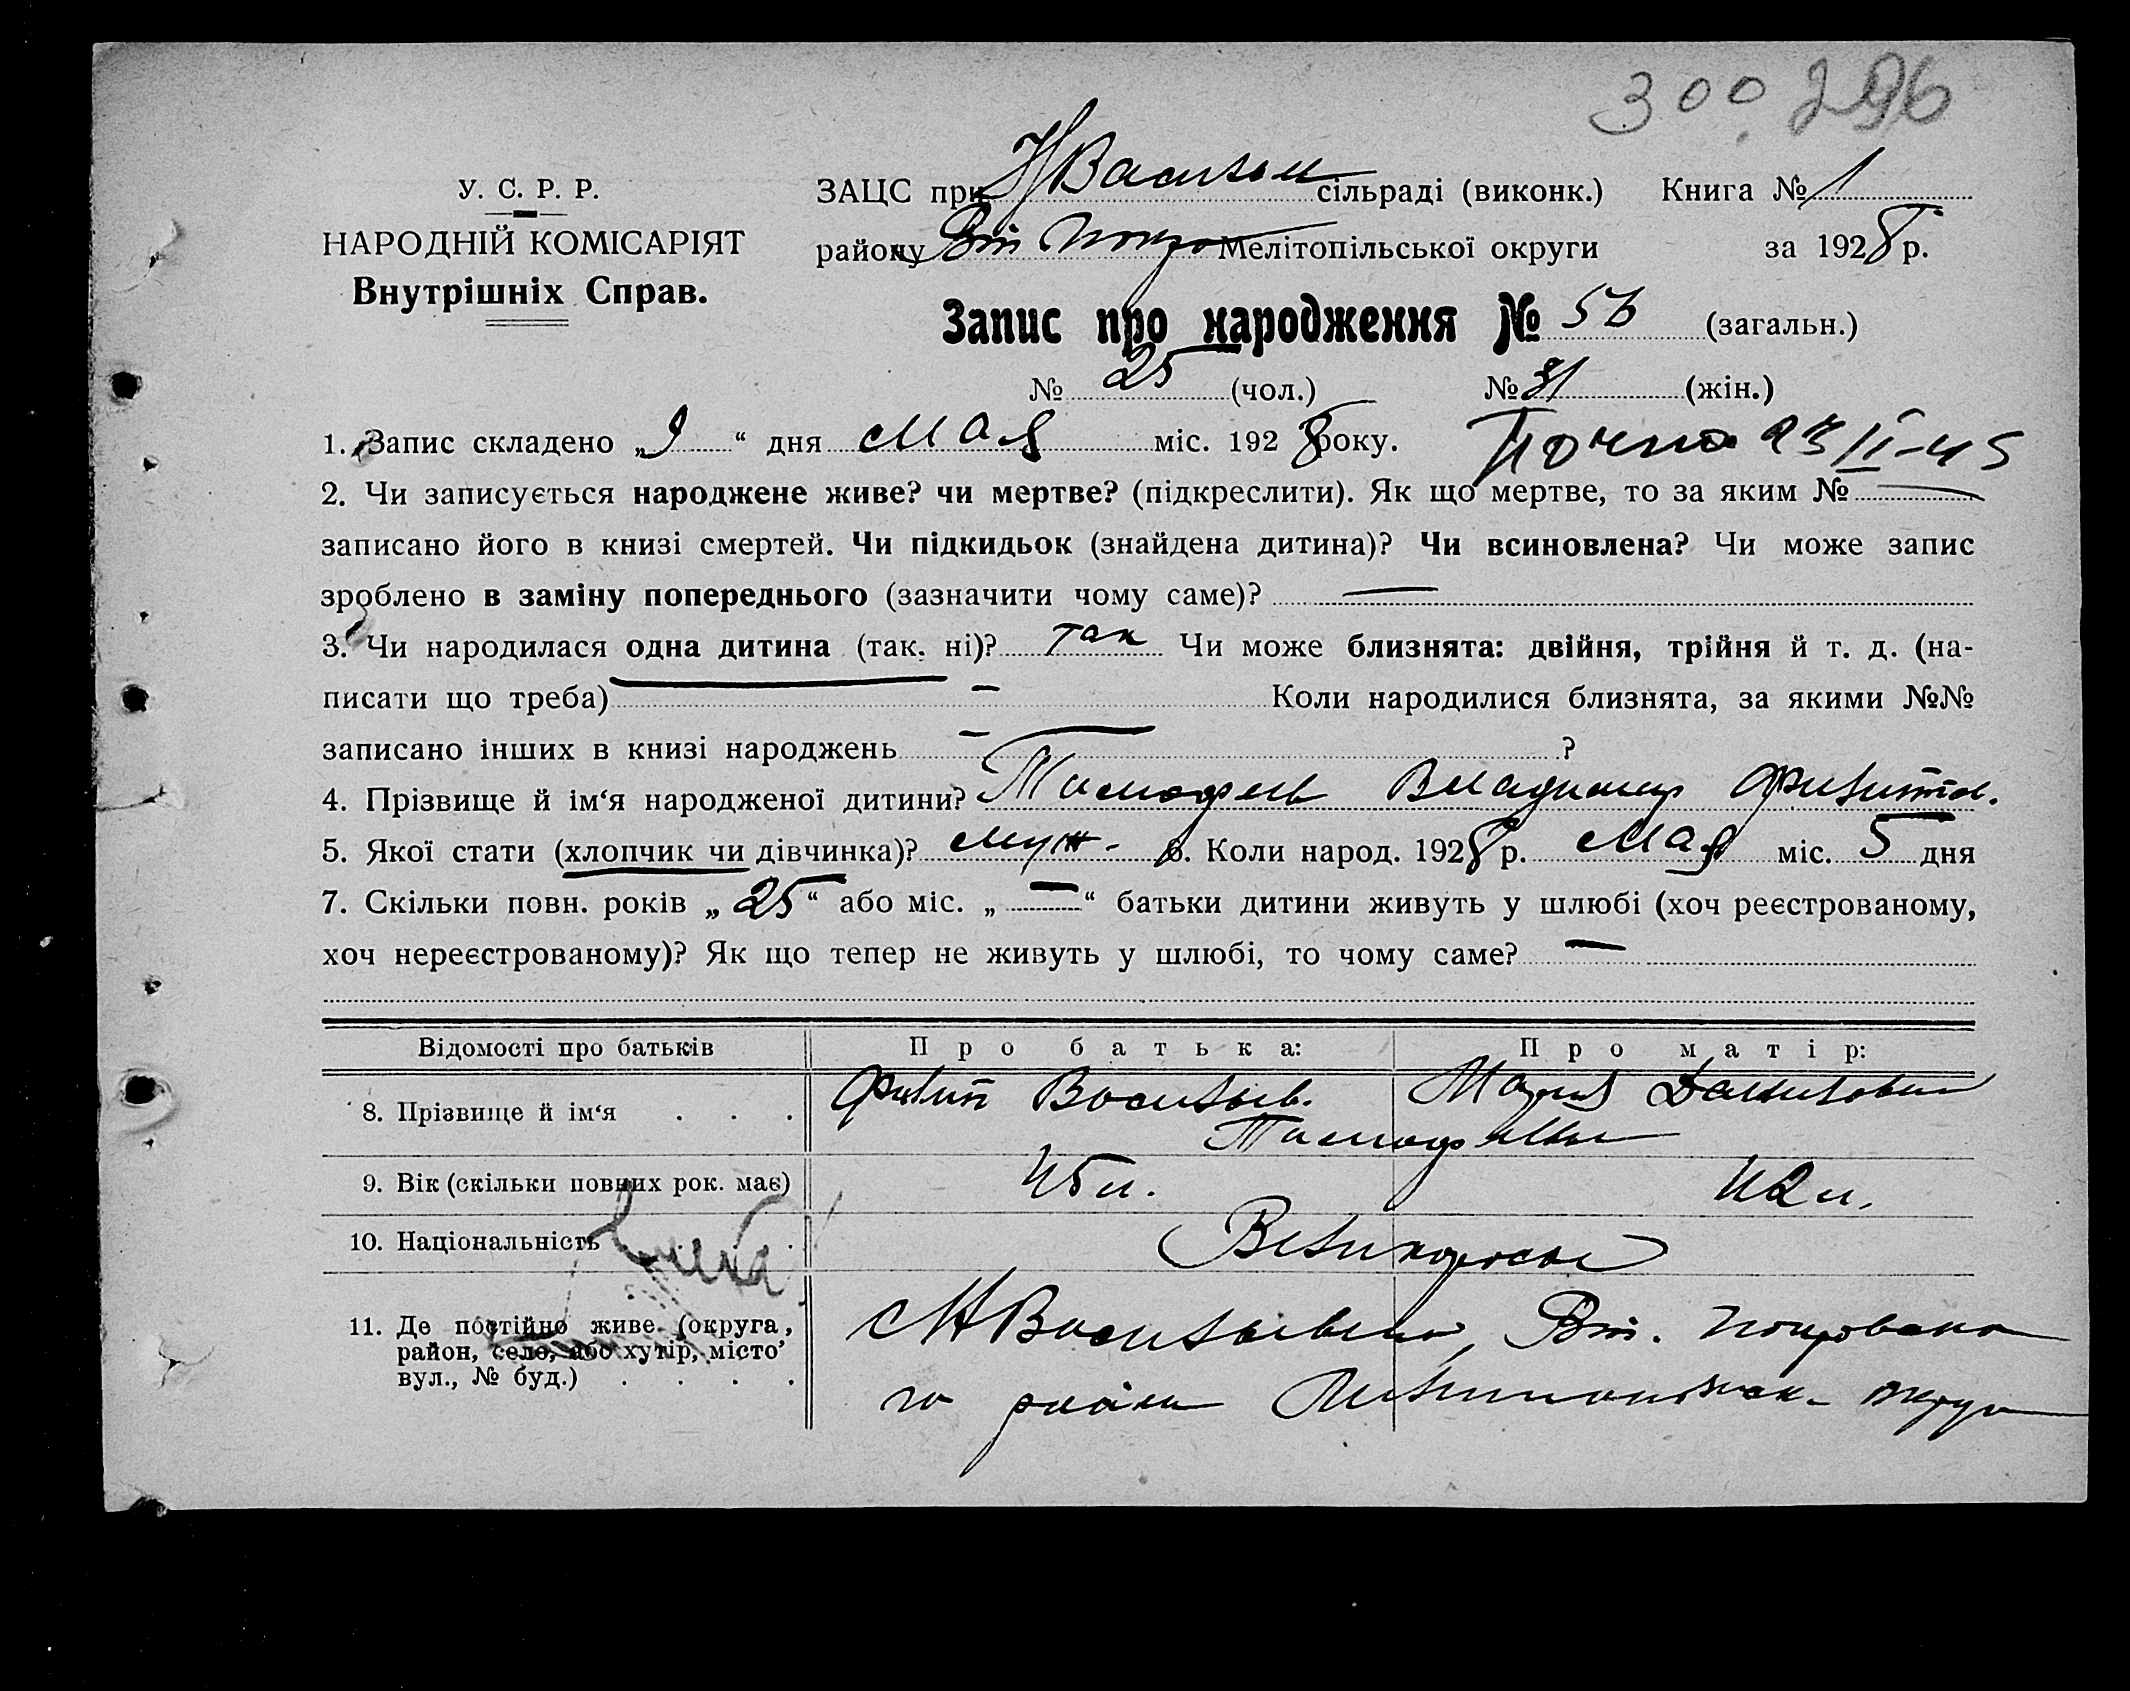 300 296
У. С. Р. Р.
НАРОДНІЙ КОМІСАРІЯТ
Внутрішніх Справ.
ЗАЦС при НВасильев сільраді (виконк.) Книга № 1
району Вт Покро Мелітопільської округи за 1928 р.
Запис про народження № 56 (загальн.)
№ 25 (чол.) № 31 (жін.)
1. Запис складено „9“ дня мая міс. 1928 року.
23/II-45
2. Чи записується народжене живе? чи мертве? (підкреслити). Як що мертве, то за яким № —
записано його в книзі смертей. Чи підкидьок (знайдена дитина)? Чи всиновлена? Чи може запис
зроблено в заміну попереднього (зазначити чому саме)? —
3. Чи народилася одна дитина (так, ні)? так Чи може близнята: двійня, трійня й т. д. (на-
писати що треба) — Коли народилися близнята, за якими №№
записано інших в книзі народжень — ?
4. Прізвище й ім‘я народженої дитини? Тимофеев Владимир Филиппов.
5. Якої стати (хлопчик чи дівчинка)? муж. 6. Коли народ. 1928 р. мая міс. 5 дня
7. Скільки повн. років „25“ або міс. „—“ батьки дитини живуть у шлюбі (хоч реєстрованому,
хоч нереєстрованому)? Як що тепер не живуть у шлюбі, то чому саме? —
Відомості про батьків Про батька: Про матір:
8. Прізвище й ім‘я . . . Филип Васильев. Мария Даниловна
Тимофеевы
9. Вік (скільки повних рок. має) 45 л. 42 л.
10. Національність Великоросы
11. Де постійно живе (округа,
район, село, або хутір, місто
вул., № буд.) . . . .
с НВасильевка, Вт. Покровско
го район Мелитопольск. округа